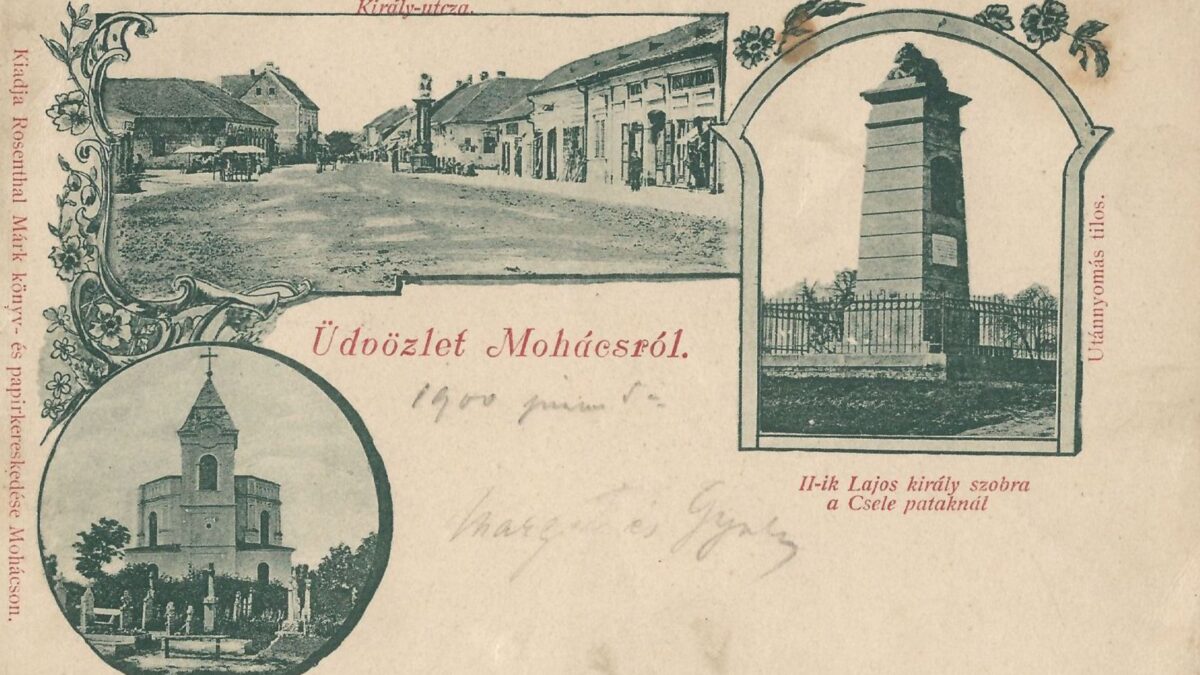 Király-utcza.
Kiadja Rosenthal Márk könyv- és papirkereskedése Mohácson.
Utánnyomás tilos.
Üdvözlet Mohácsról.
1900
II-ik Lajos király szobra
a Csele pataknál
és